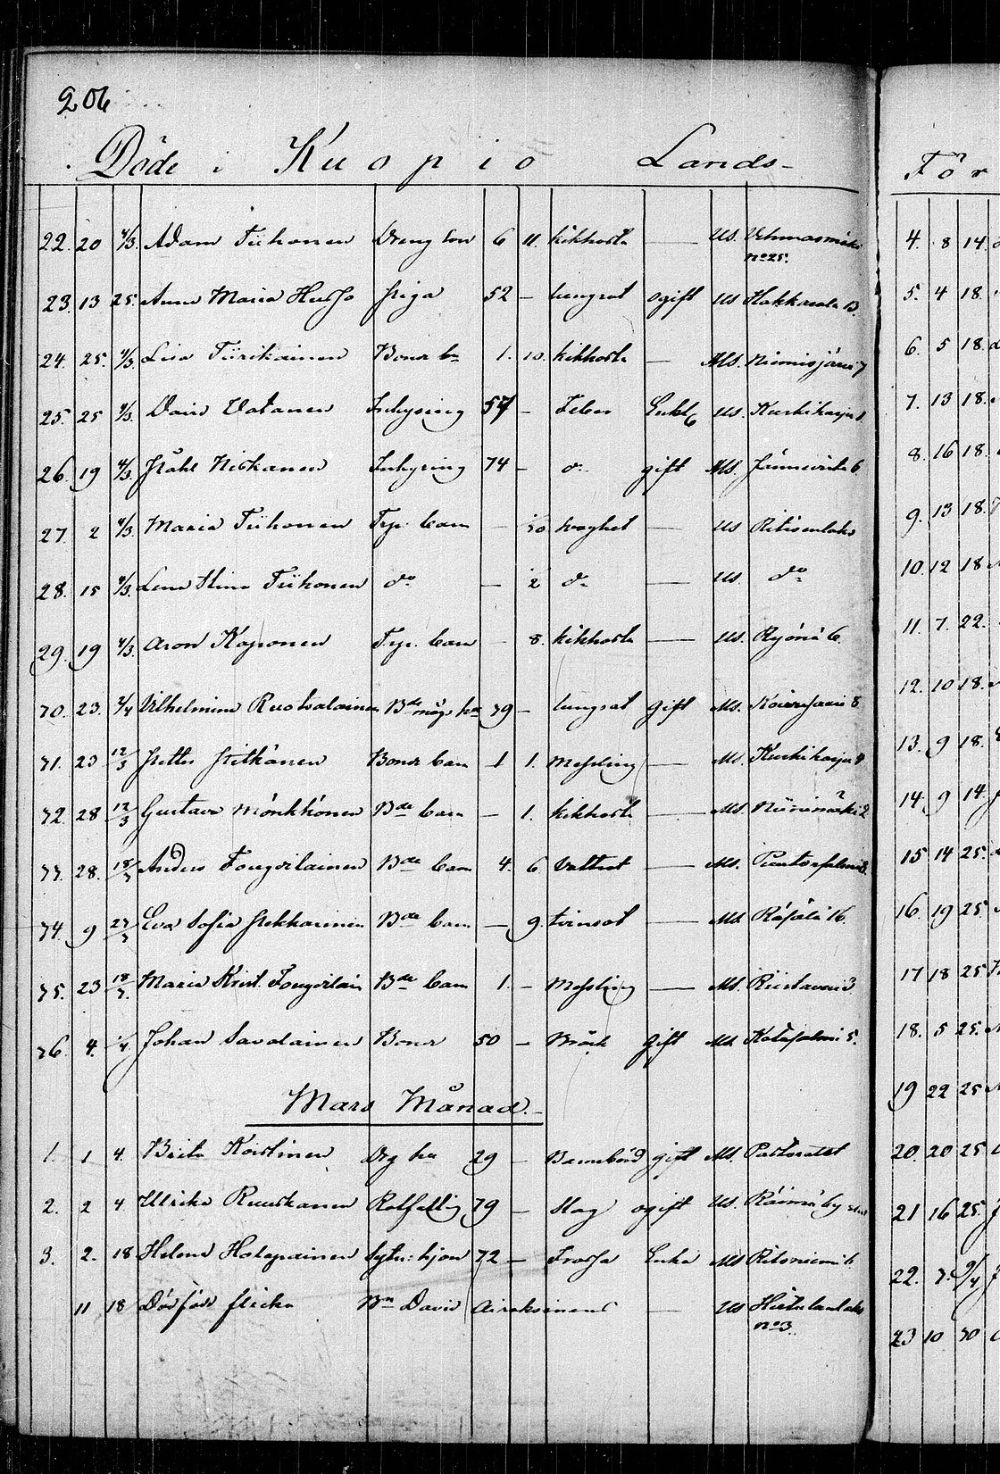 206
Döde i Kuopio Lands-
22. 20 4/3. Adam Tiihonen Dreng Son 6 11. kikhosta — Us. Vehmasmäki
no 25.
23. 13 25. Anna Maria Husso piga 52 — lungsot ogift Us Hakkarala 13.
24. 25. 4/3. Lisa Tiirikainen Bonde bn 1. 10. kikhosta — Ms. Niemisjärvi 7
25. 25 4/3. David Vatanen Inhysing 57 — Feber Enkl. Us. Kurkiharju
26. 19 4/3. Ståhl Niskanen Inhysing 74 — do gift Ms. Jännevirta 6.
27 2 4/3. Maria Tiihonen Trp. barn — 30 svaghet — Us Ritisenlaks
28. 15 4/3. Lena Stina Tiihonen do — 2 do — Us do
29. 19 4/3. Aron Kaponen Trp. barn — 8. kikhosta — Us. Ryönä 6.
70. 23. 4/4 Vilhelmina Ruotsalainen Bde måg hu 39 — lungsot gift Ms. 8
71. 23 12/3 Petter Pitkänen Bonde barn 1 1. Messling — Ms. Kurkiharju 9
72. 28 12/3 Gustava Mönkkönen Bde barn — 1. kikhosta — Ms. Niinimäki 2
73. 28. 18/3 Anders Tougoilainen Bde barn 4. 6 Vattsot — Ms.
74. 9 27/3 Eva Sofia Pekkarinen Bde barn — 9. tvinsot — Ms. Räsälä 16.
75. 23 18/3. Maria Krist. Tougoilain Bde barn 1. — Messling — Ms. Riistavesi 3
76. 4. 4/4 Johan Savolainen Bonde 50 — Bråck gift Ms. Kotasalmi 5.
Mars Månad.
1. 1 4. Brita Koistinen Drg hu 29 — Barnbörd gift Ms. Pastoratet
2. 2 4 Ulrika Ruuskanen Rotfattig 79 — Slag ogift Us. Räimä by
3. 2. 18 Helena Hotapainen Sytn: hjon 72 — Frossa Enka Ms Ritoniemi
11 18 Dödfödd flicka Bn David Airaksinens — Us Hirtulanlaks
no 3.
För
4. 8 14.
5. 4 18.
6. 5 18.
7. 13 18.
8. 16 18.
9. 13 18.
10. 12 18
11. 7. 22.
12. 10 18.
13. 9 18.
14. 9 14.
15 14 25.
16. 19 25
17 18 25
18. 5 25.
19 22 25
20. 20 25
21 16 25.
22. 7. 9/4
23 10 30